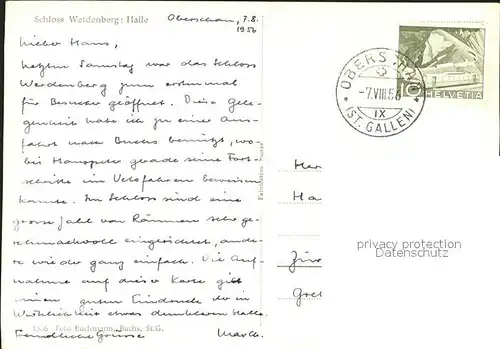 Schloss Werdenberg: Halle
Oberschan, 7.8.
1956
Lieber Hans,
letzten Samstag war das Schloss
Werdenberg zum erstenmal
für Besucher geöffnet. Diese Gele-
genheit habe ich zu einer Aus-
fahrt nach Buchs benützt, wo-
bei Hanspeter gerade seine Fort-
schritte im Velofahren beweisen
konnte. Im Schloss sind eine
grosse Zahl von Räumen sehr ge-
schmackvoll eingerichtet, ande-
re wieder ganz einfach. Die Auf-
nahme auf dieser Karte gibt
einen guten Eindruck der in
Wirklichkeit etwas dunkleren Halle.
Freundliche Grüsse
1556 Foto Buchmann, Buchs, St.G.
OBERSCHAN
-7.VIII.56
IX
(ST. GALLEN)
10
HELVETIA
Her
Ha
Zür
Gret
privacy protection
Datenschutz